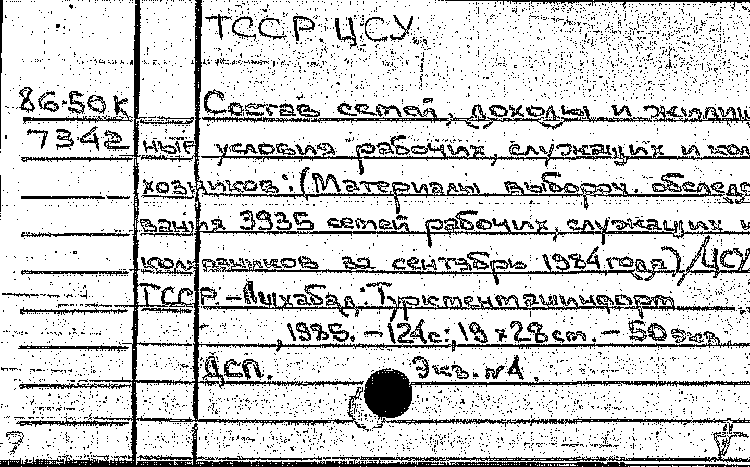 ТССР. ЦСУ.
86-50к Состав семей, доходы и жилищ
7342 ные условия рабочих, служащих и кол
хозников: (Материалы выбороч. обследо
вания 3935 семей рабочих, служащих и
колхозников за сентябрь 1984 года) / ЦСУ
ТССР. - Ашхабад: Туркменглавинформ
, 1985. - 124с.; 19 х 28 см. - 50 экз.
ДСП. Экз. № 1.